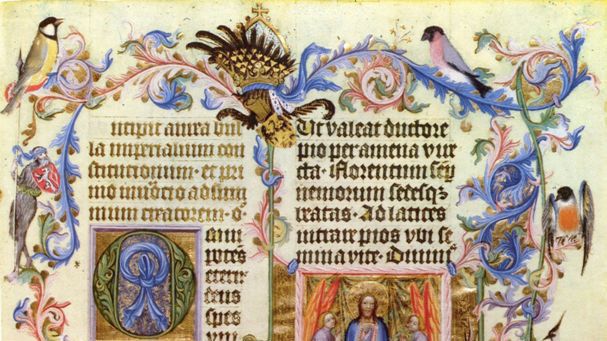 ncipit aurea bul
la imperialium con
stitucionum · et pri
mo inuocacio ad sum
mum creatorem · O
mni
potes
eterne
deus
spes
vni
Ut valeat ductore
pio per amena vire
cta · Florentum semp
nemorum sedesqz
beatas · Ad latices
intrare pios vbi se
mina vite · Diuinis